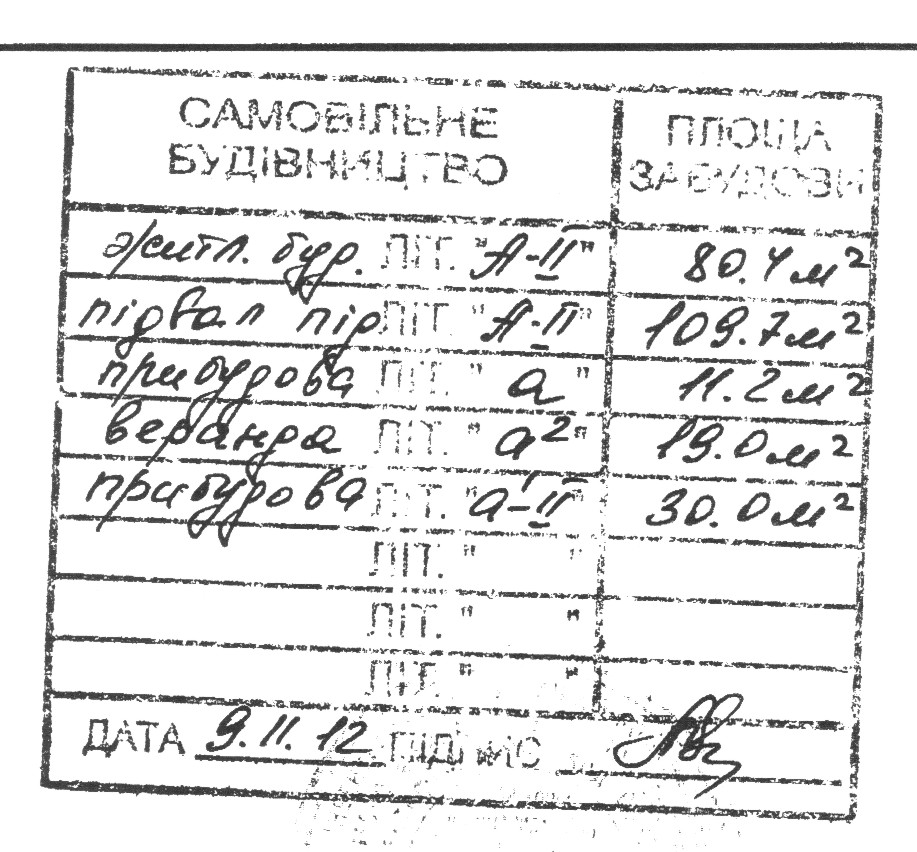 САМОВІЛЬНЕ БУДІВНИЦТВО ПЛОЩА ЗАБУДОВИ
житл. буд. ЛІТ. "А-ІІ" 80.4 м²
підвал під ЛІТ. "А-ІІ" 109.7 м²
прибудова ЛІТ. "а" 11.2 м²
веранда ЛІТ. "а²" 19.0 м²
прибудова ЛІТ. "а'-ІІ" 30.0 м²
ЛІТ. " "
ЛІТ. " "
ЛІТ. " "
ДАТА 9.11.12 ПІДПИС